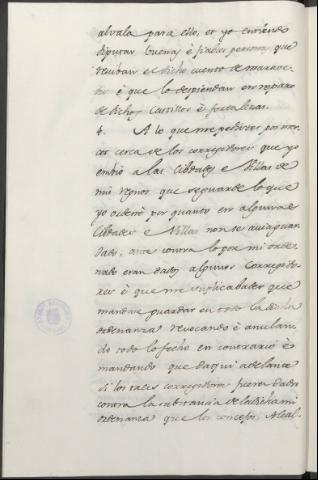 alvala para ello, et yo entiendo
diputar buenas é fiables personas que
reciban el dicho cuento de marave-
dis é que lo despiendan en reparo
de dichos castillos é fortalezas.
4. A lo que me pedistes por mer-
ced cerca de los corregidores que yo
embio a las Cibdades e Villas de
mis regnos que se guarde lo que
yo ordené por quanto en algunas
Cibdades e Villas non se avia guar-
dado, ante contra lo por mi orde-
nado eran dados algunos corregido-
res é que me suplicabades que
mandase guardar en todo la dicha
ordenanza revocando é anulan-
do todo lo fecho en contrario é
mandando que daqui adelante
si los tales corregidores fueren dados
contra la substancia de la dicha mi
ordenanza que los concejos, Alcal-